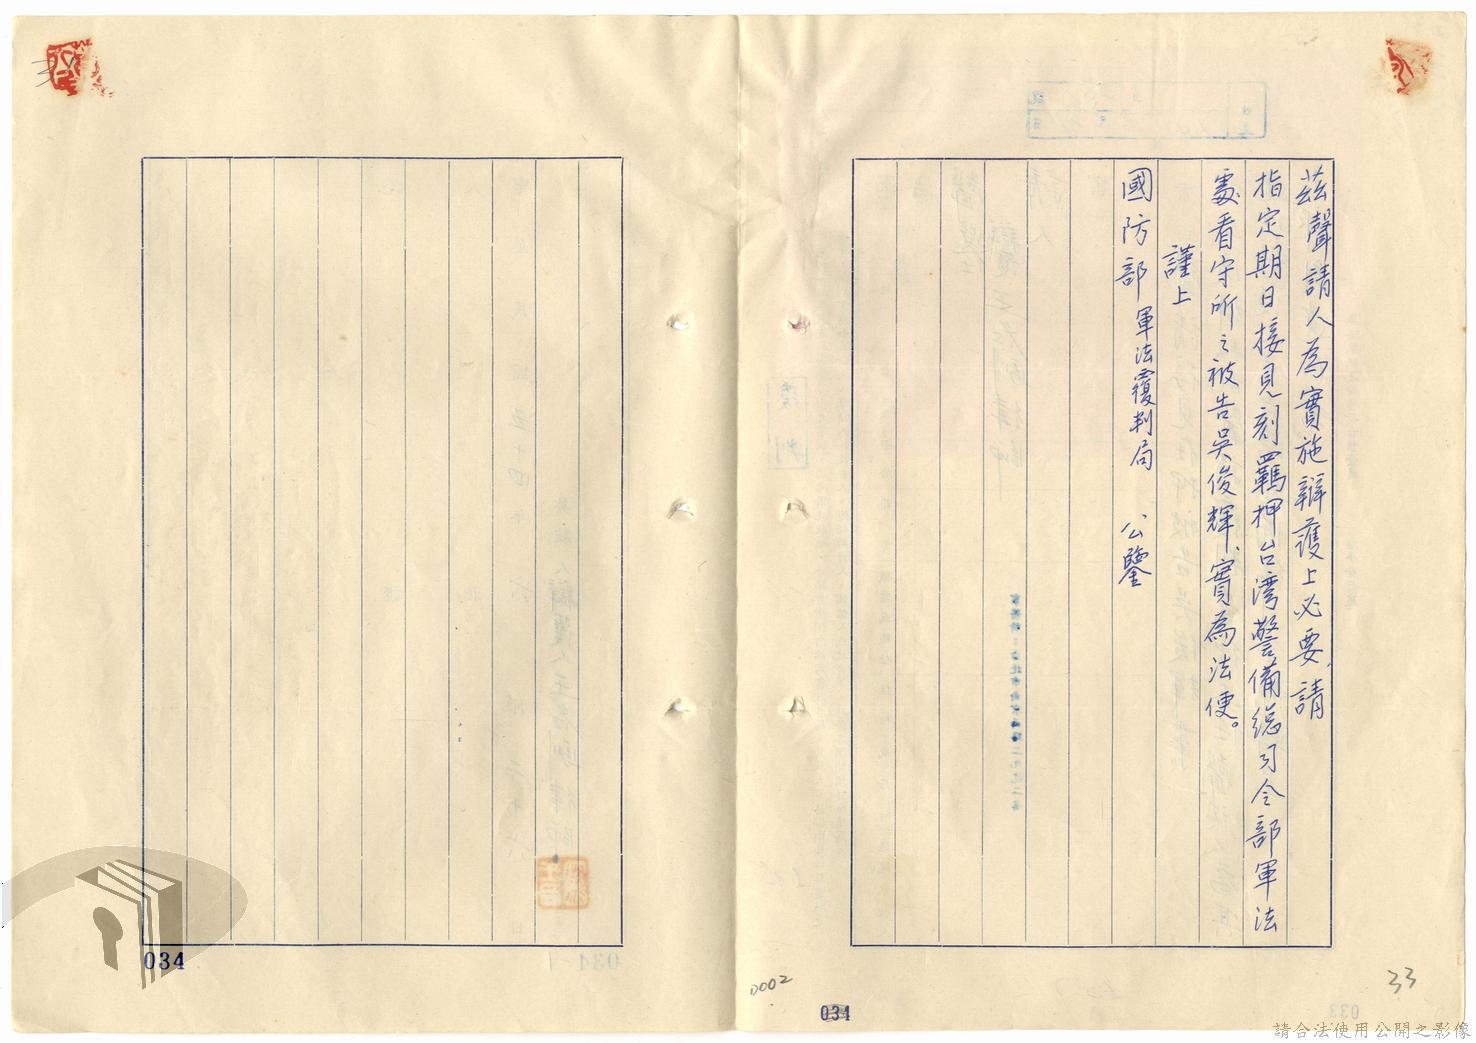 茲聲請人為實施辯護上必要、請
指定期日接見刻羈押台湾警備総司令部軍法
處看守所之被告吳俊輝、實為法便。
謹上
國防部 軍法覆判局 公鑒
034
0002
034
33
請合法使用公開之影像